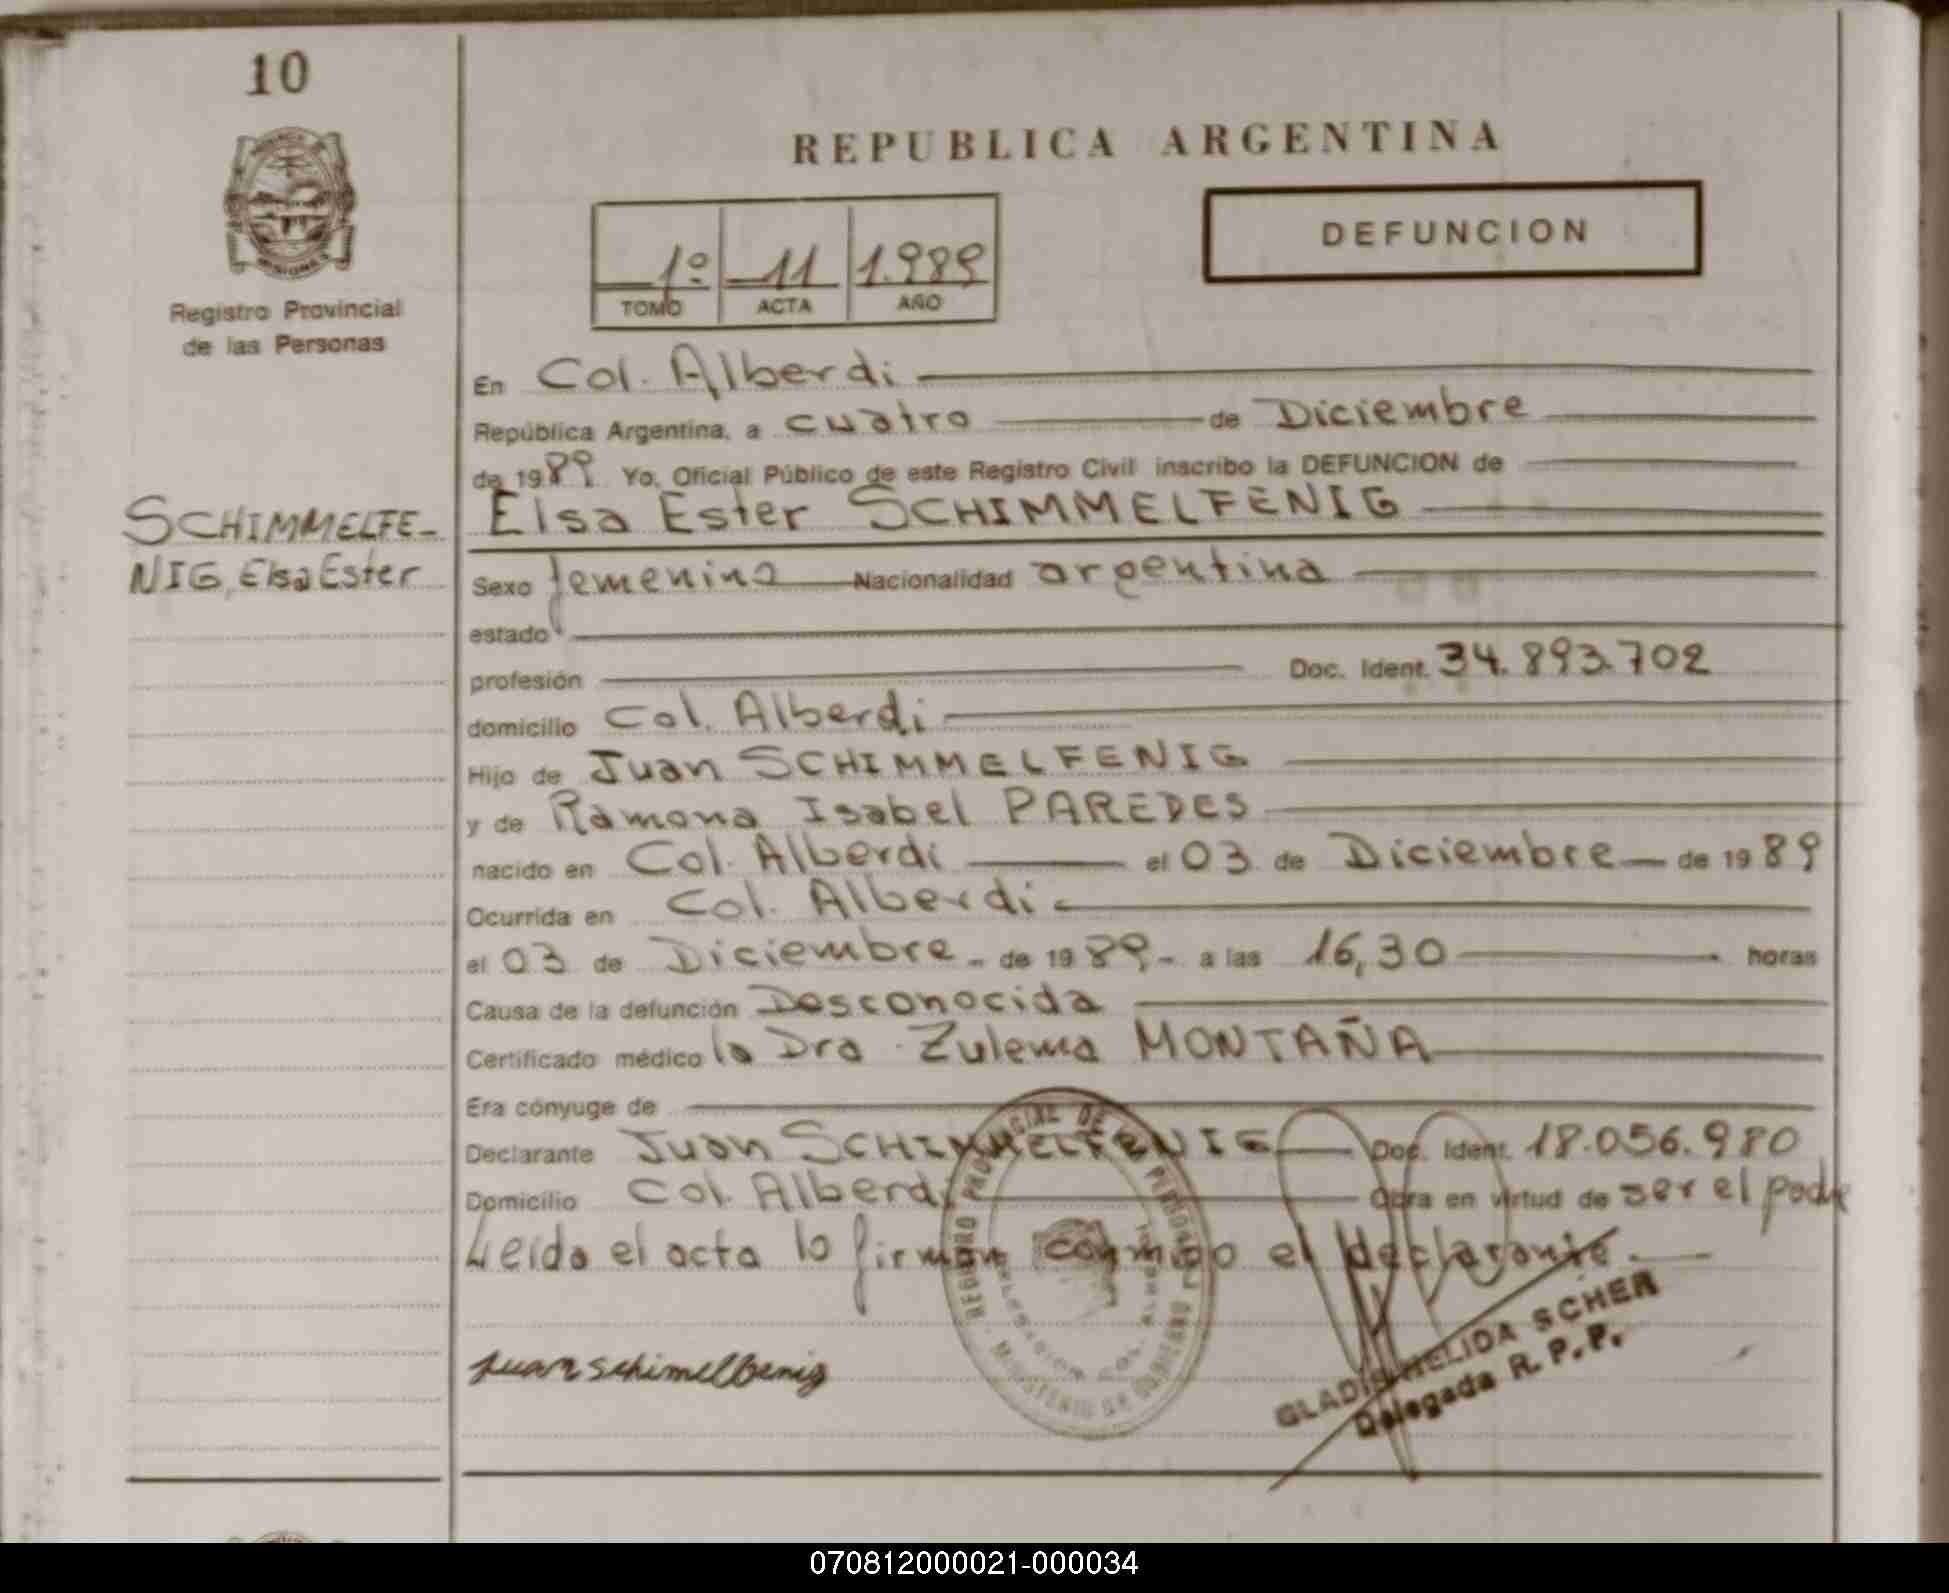 10
Registro Provincial
de las Personas
REPUBLICA ARGENTINA
1º 11 1.989
TOMO ACTA AÑO
DEFUNCION
En Col. Alberdi
República Argentina, a cuatro de Diciembre
de 1989 Yo, Oficial Público de este Registro Civil inscribo la DEFUNCION de
SCHIMMELFE-
NIG, Elsa Ester
Elsa Ester SCHIMMELFENIG
Sexo femenino Nacionalidad argentina
estado
profesión Doc. Ident. 34.893.702
domicilio Col. Alberdi
Hijo de Juan SCHIMMELFENIG
y de Ramona Isabel PAREDES
nacido en Col. Alberdi el 03 de Diciembre de 1989
Ocurrida en Col. Alberdi
el 03 de Diciembre - de 1989 - a las 16,30 horas
Causa de la defunción Desconocida
Certificado médico la Dra. Zulema MONTAÑA
Era cónyuge de
Declarante Juan SCHIMMELFENIG Doc. Ident. 18.056.980
Domicilio Col. Alberdi Obra en virtud de ser el padre
Leida el acta lo firman conmigo el declarante.
Juan schimelbenig
REGISTRO PROVINCIAL DE LAS PERSONAS
MINISTERIO DE GOBIERNO
GLADIS NELIDA SCHER
Delegada R. P. P.
070812000021-000034